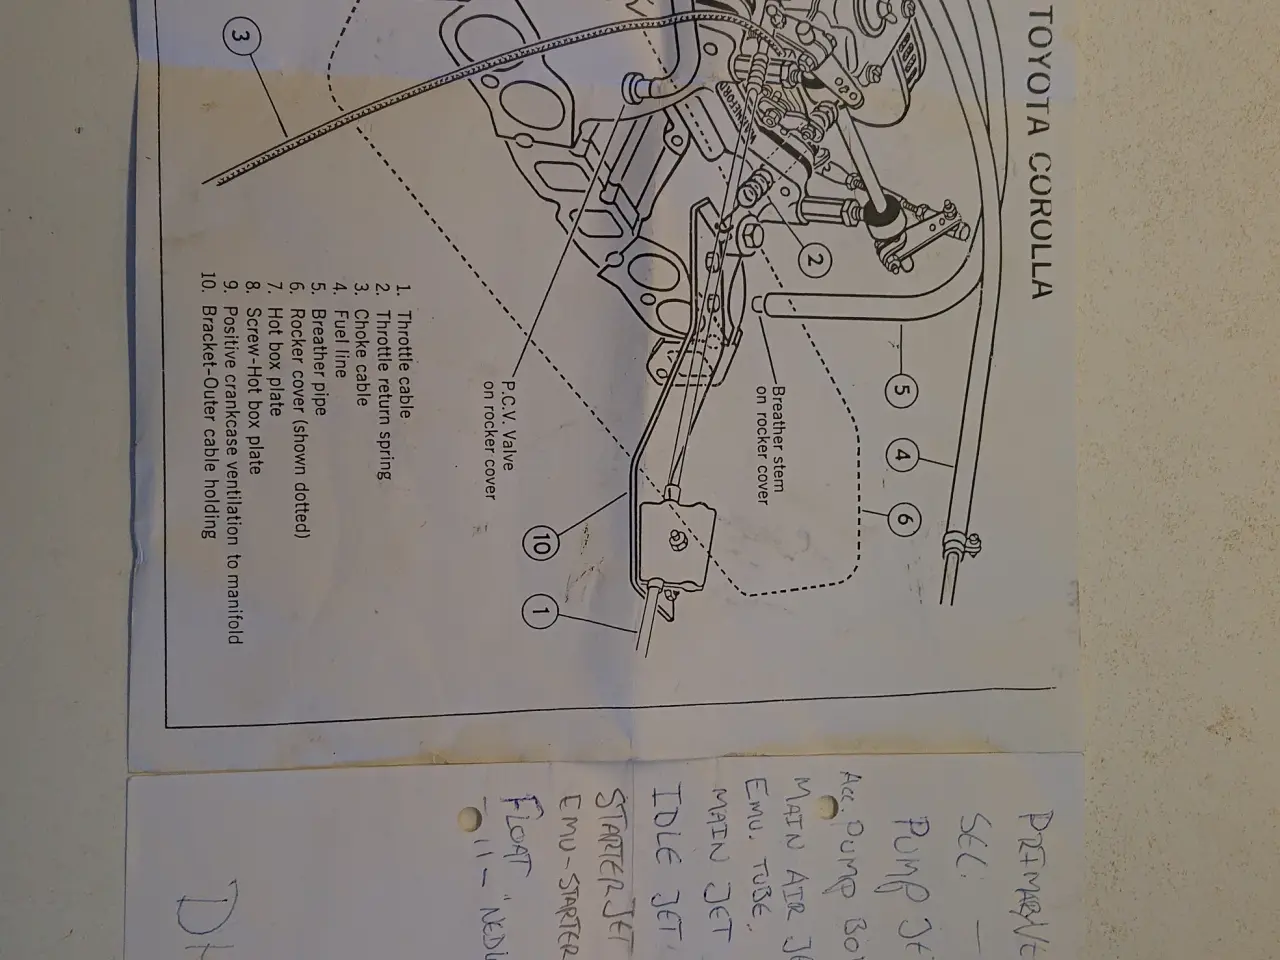 TOYOTA COROLLA
3
2
5
4
6
10
1
Breather stem
on rocker cover
P.C.V. Valve
on rocker cover
1. Throttle cable
2. Throttle return spring
3. Choke cable
4. Fuel line
5. Breather pipe
6. Rocker cover (shown dotted)
7. Hot box plate
8. Screw-Hot box plate
9. Positive crankcase ventilation to manifold
10. Bracket-Outer cable holding
SEC. —
PUMP JE
Acc. PUMP
MAIN AIR JE
EMU. TUBE.
MAIN JET
IDLE JET.
STARTER JET
EMU-STARTER
FLOAT